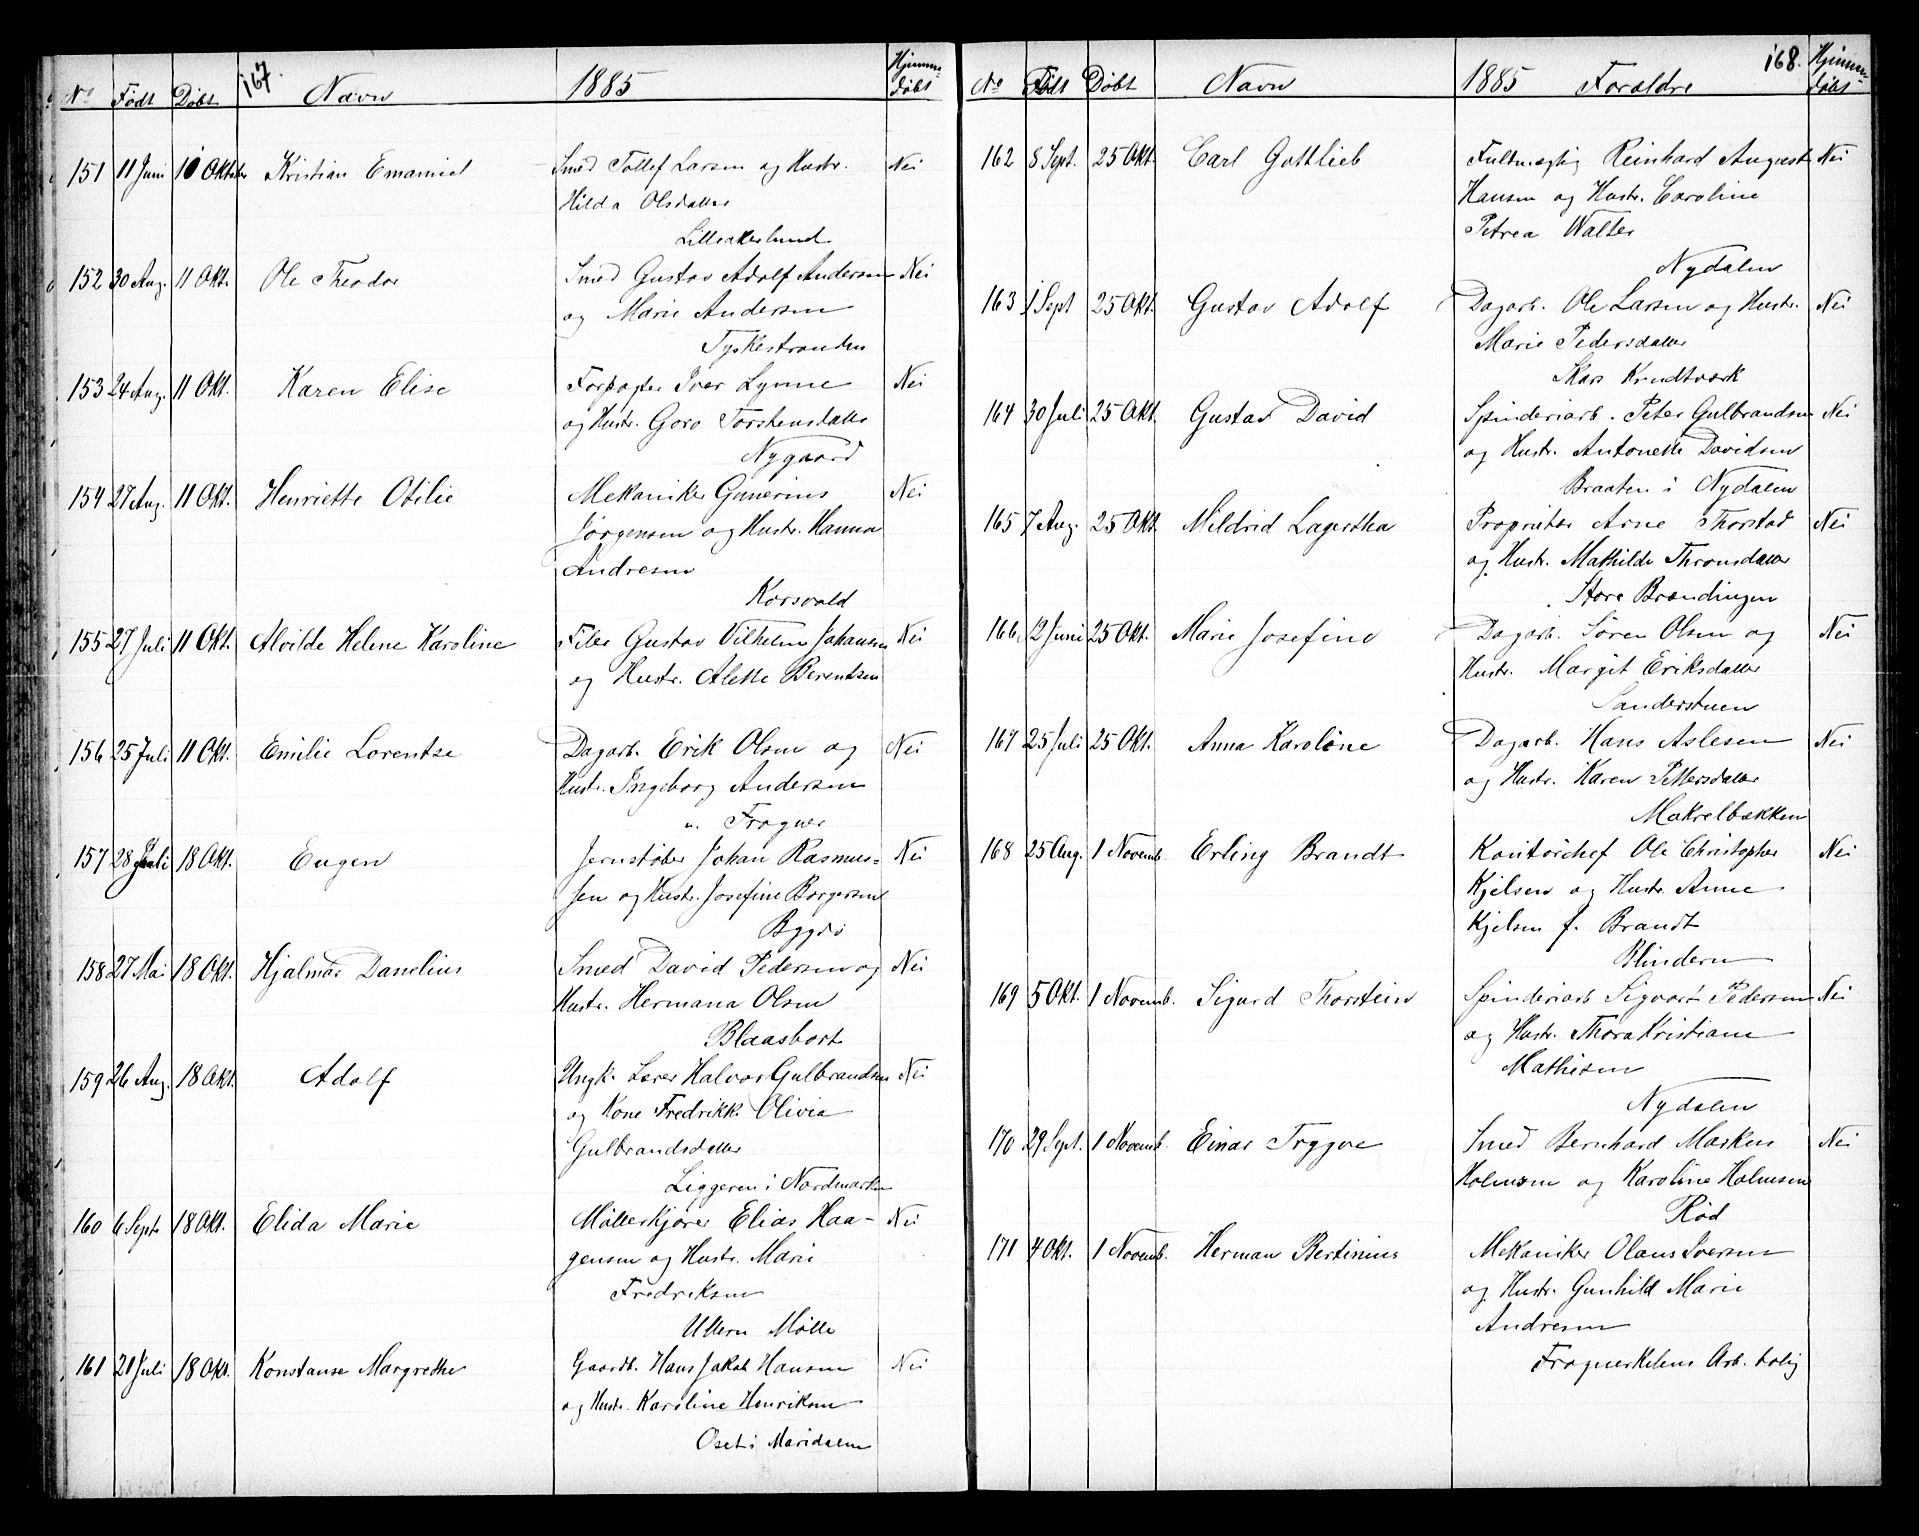 167.
No Født Døbt Navn 1885 Hjemmedøbt
151 11 Juni 10 Oktober Kristian Emanuel Smed Tollef Larsen og Hustr. Nei
Hilda Olsdatter
Lilleakerlund
152 30 Aug. 11 Okt. Ole Theodor Smed Gustav Adolf Andersen Nei
og Marie Andersen
Tyskestranden
153 24 Aug. 11 Okt. Karen Elise Forpagter Iver Lynne Nei
og Hustr. Goro Torstensdatter
Nygaard
154 27 Aug. 11 Okt. Henriette Otilie Mekaniker Gunerius Nei
Jørgensen og Hustr. Hanna
Andresen
Korsvold
155 27 Juli 11 Okt. Alvilde Helene Karoline Filer Gustav Vilhelm Johansen Nei
og Hustr. Alette Berentsen
156 25 Juli 11 Okt. Emilie Lorentse Dagarb. Erik Olsen og Nei
Hustr. Ingeborg Andersen
n. Frogner
157 28 Juli 18 Okt. Eugen Jernstøber Johan Rasmus= Nei
sen og Hustr. Josefine Borgersen
Bygdø
158 27 Mai 18 Okt. Hjalmar Danelius Smed David Pedersen og Nei
Hustr. Hermana Olsen
Blaasbort
159 26 Aug. 18 Okt. Adolf Ungk. Lærer Halvor Gulbrandsen Nei
og Kone Fredrikke Olivia
Gulbrandsdatter
Liggeren i Nordmarken
160 6 Sept 18 Okt. Elida Marie Møllerkjører Elias Haa- Nei
gensen og Hustr. Marie
Fredriksen
Ullern Mølle
161 21 Juli 18 Okt. Konstanse Margrethe Gaardb. Hans Jakob Hansen Nei
og Hustr. Karoline Henriksen
Oset i Maridalen
168.
No Født Døbt Navn 1885 Forældre Hjemmedøbt
162 8 Sept. 25 Okt. Carl Gottlieb Fuldmægtig Reinhard August Nei
Hansen og Hustr. Caroline
Petrea Walter
Nydalen
163 1 Sept 25 Okt. Gustav Adolf Dagarb. Ole Larsen og Hustr. Nei
Marie Pedersdatter
Skars Krudtværk
164 30 Juli 25 Okt. Gustav David Spinderiarb. Peter Gulbrandsen Nei
og Hustr. Antonette Davidsen
Braaten i Nydalen
165 7 Aug. 25 Okt. Mildrid Lagertha Proprietær Arne Thorstad Nei
og Hustr. Mathilde Thronsdatter
Store Brændingen
166 12 Juni 25 Okt. Marie Josefine Dagarb. Søren Olsen og Nei
Hustr. Margit Eriksdatter
Sanderstuen
167 25 Juli 25 Okt. Anna Karoline Dagarb. Hans Aslesen Nei
og Hustr. Karen Pettersdatter
Makrelbækken
168 25 Aug. 1 Novemb Erling Brandt Kontorchef Ole Christopher Nei
Kjelsen og Hustr. Anne
Kjelsen f. Brandt
Blindern
169 5 Okt. 1 Novemb. Sigurd Thorstein Spinderiarb Sigvart Pedersen Nei
og Hustr. Thora Kristiane
Mathisen
Nydalen
170 29 Sept. 1 Novemb. Einar Tryggve Smed Bernhard Markus Nei
Holmsen og Karoline Holmsen
Rød
171 4 Okt. 1 Novemb. Herman Bertinius Mekaniker Olaus Iversen
og Hustr. Gunhild Marie
Andresen
Frognerkilens Arb. bolig